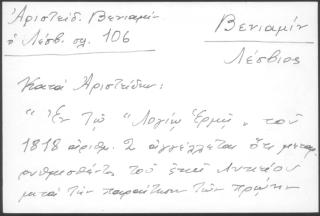 Ἀριστείδ. Βενιαμίν
ὁ Λέσβ. σλ. 106
Βενιαμίν
Λέσβιος
Κατά Ἀριστείδην:
"Ἐν τῷ "Λογίῳ Ἑρμῇ" τοῦ
1818 ἀριθμ. 2 ἀγγέλλεται ὅτι μεταρ
ρυθμισθέντος τοῦ ἐκεῖ Λυκείου
μετά τήν παραίτησιν τῶν πρώτην